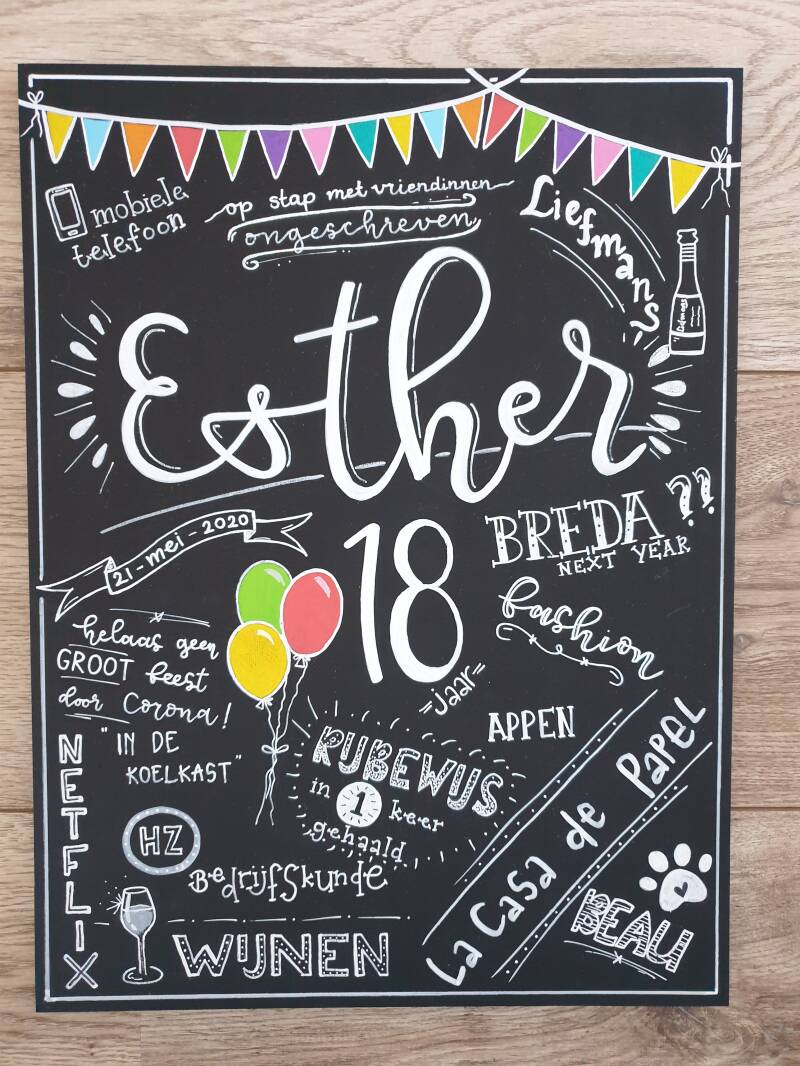 mobiele
telefoon
op stap met vriendinnen
ongeschreven
Liefmans
Liefmans
Esther
21-mei-2020
18
=jaar=
BREDA ??
NEXT YEAR
fashion
helaas geen
GROOT feest
door Corona!
"IN DE
KOELKAST"
APPEN
RIJBEWIJS
in 1 keer
gehaald
La Casa de Papel
NETFLIX
HZ
Bedrijfskunde
WIJNEN
BEAU